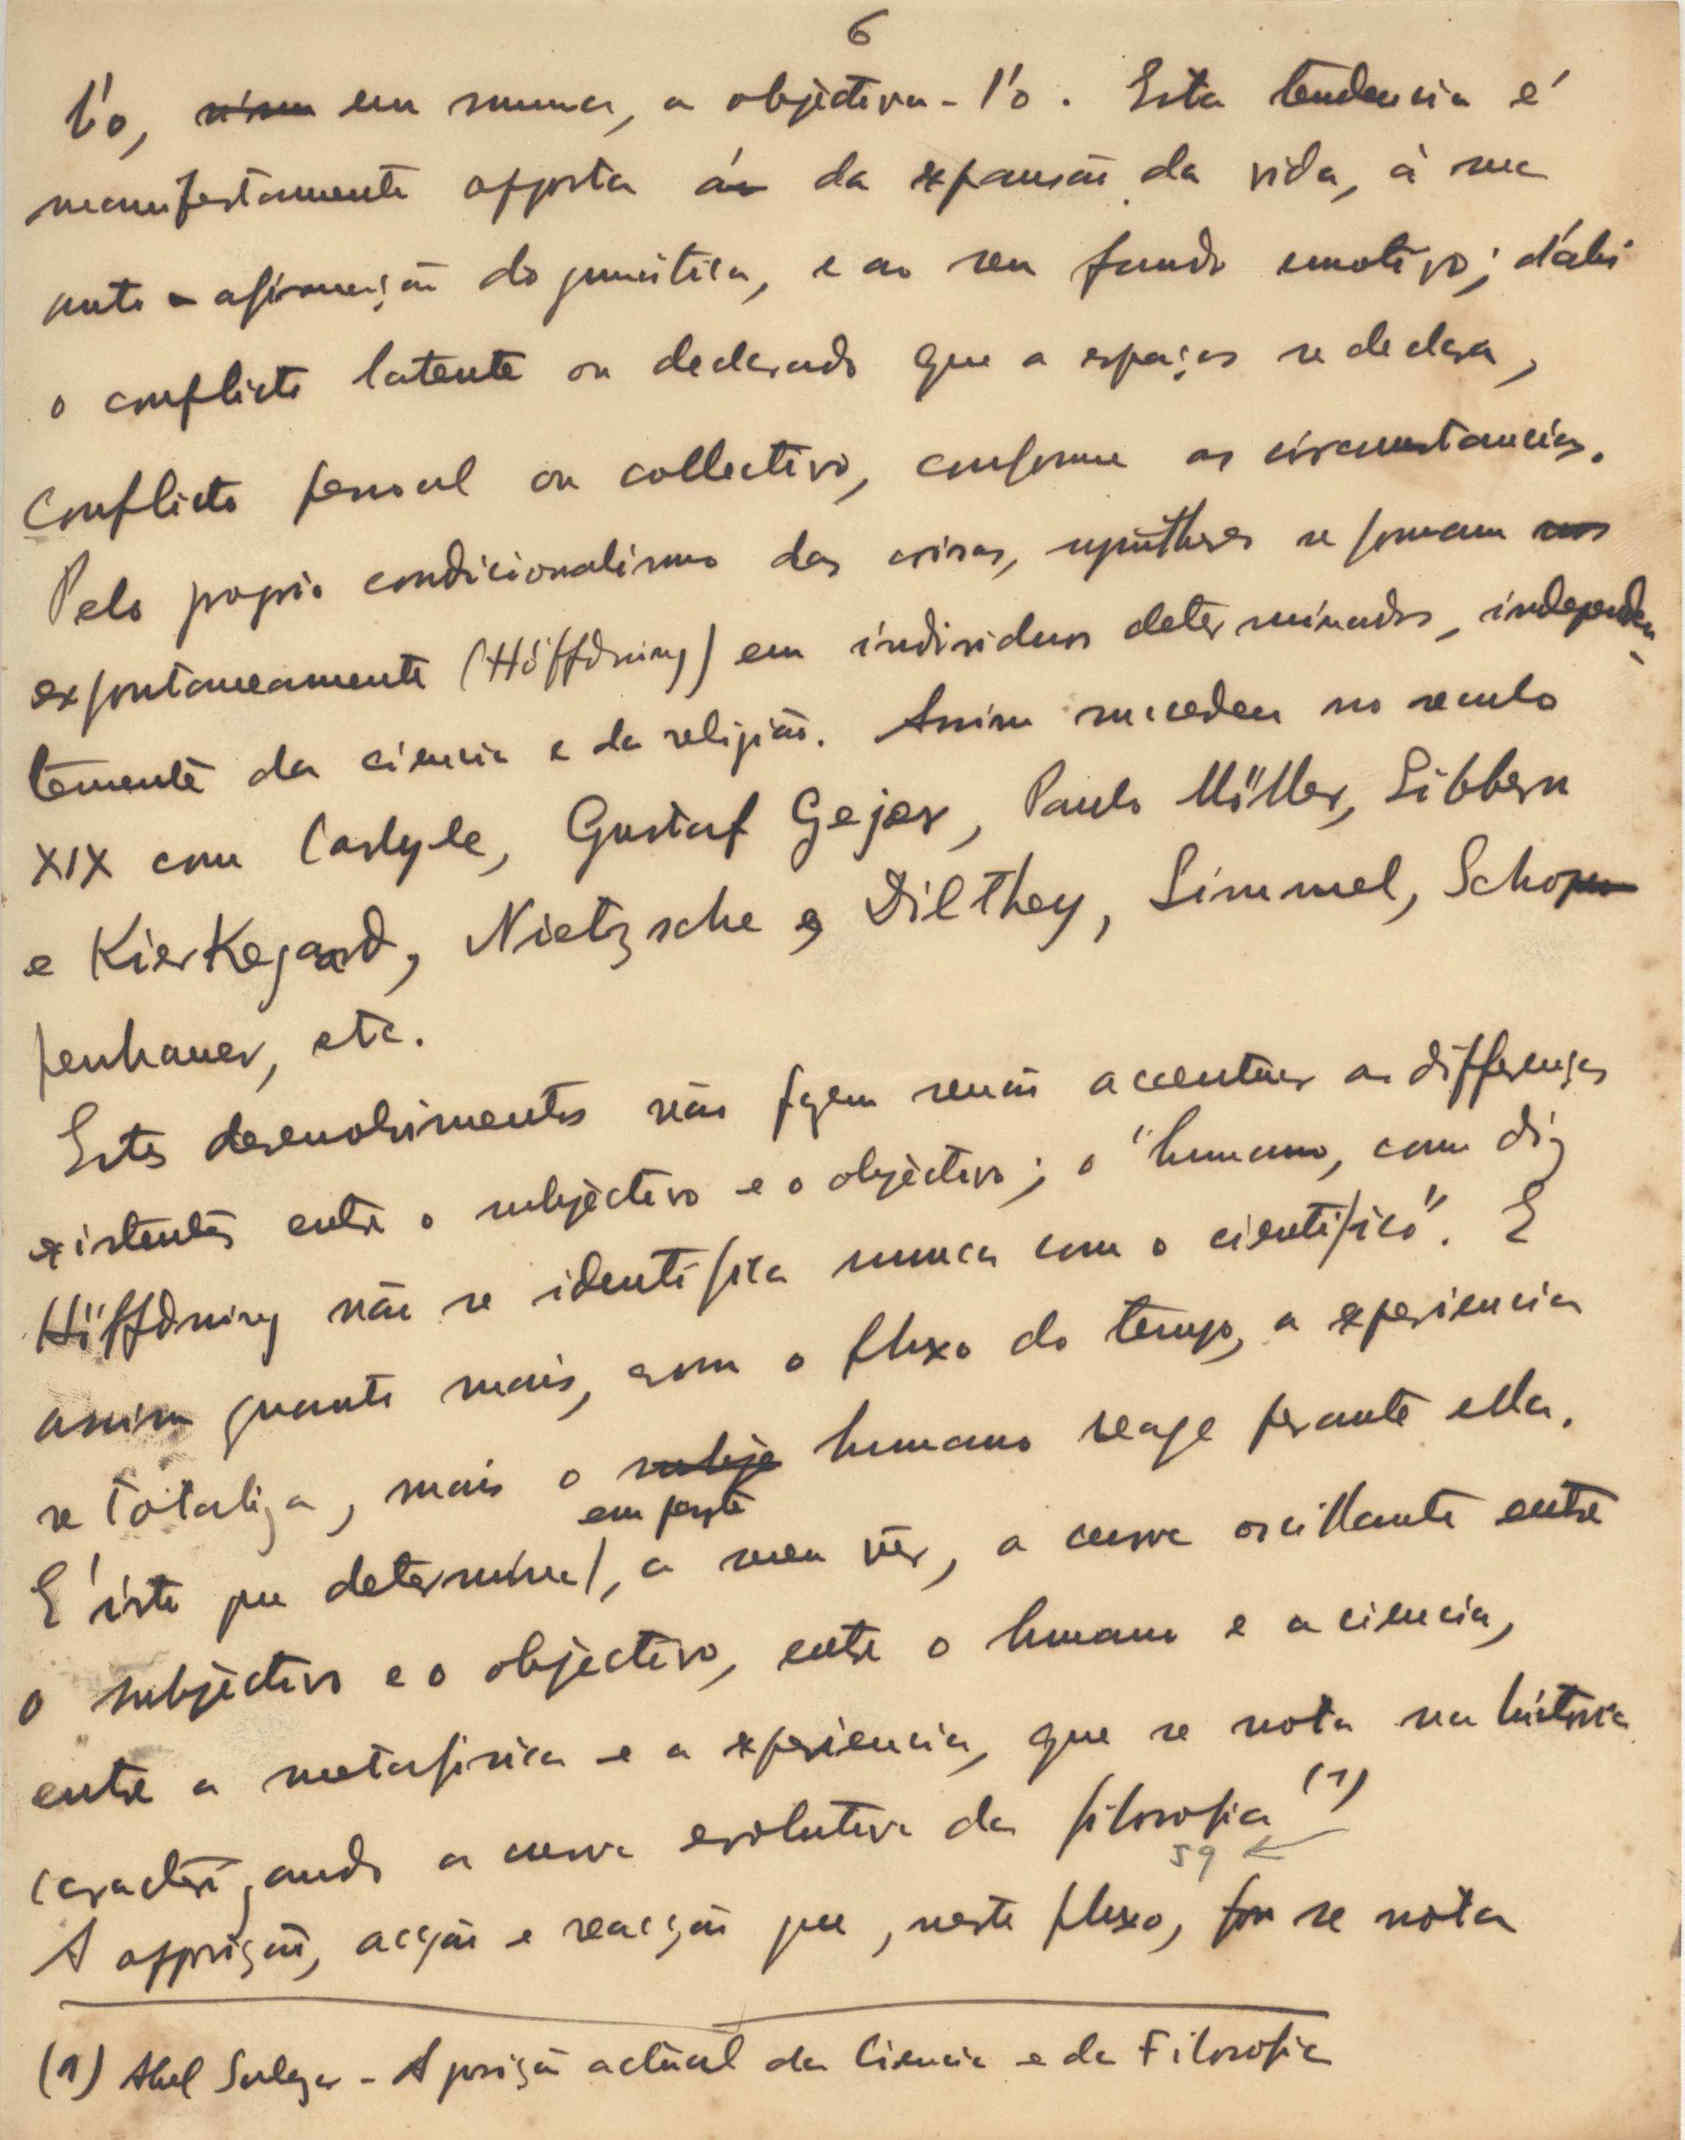 6
l'o, em summa, a objectiva-l'o. Esta tendencia é
manifestamente opposta á da expansão da vida, à sua
auto-afirmação dogmática, e ao seu fundo emotivo; d'ahi
o conflicto latente ou declarado que a espaços se declara,
conflicto pessoal ou collectivo, conforme as circumstancias.
Pelo proprio condicionalismo das coisas, syntheses se formam nos
expontaneamente (Höffdning) em individuos determinados, independen-
temente da ciencia e da religião. Assim succedeu no seculo
XIX com Carlyle, Gustaf Gejer, Paulo Möller, Sibbern
e Kierkegaard, Nietzsche e Dilthey, Simmel, Schopen
penhauer, etc.
Estes desenvolvimentos não fazem senão accentuar as differenças
existentes entre o subjectivo e o objectivo; o "humano, como diz
Höffdning não se identifica nunca com o cientifico". E
assim quanto mais, com o fluxo do tempo, a experiencia
se totaliza, mais o subje humano reage perante ella.
em parte
E' isto que determina, a meu vêr, a curva oscillante entre
o subjectivo e o objectivo, entre o humano e a ciencia,
entre a metafisica e a experiencia, que se nota na historia
caracterizando a curva evolutiva da filosofia (1)
59
A opposição, acção e reacção que, neste fluxo, se nota
(1) Abel Salazar - A posição actual da Ciencia e da Filosofia